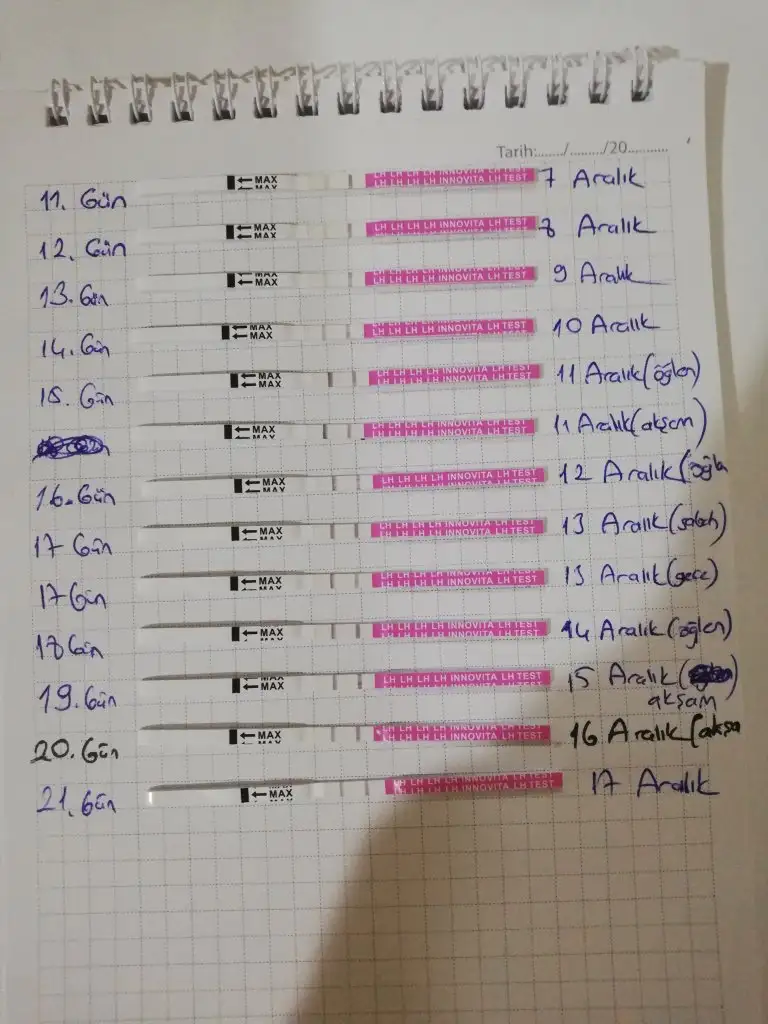 Tarih:....../......../20..........
11. Gün ←MAX LH LH LH LH INNOVITA LH TEST 7 Aralık
12. Gün ←MAX LH LH LH LH INNOVITA LH TEST 8 Aralık
13. Gün ←MAX LH LH LH LH INNOVITA LH TEST 9 Aralık
14. Gün ←MAX LH LH LH LH INNOVITA LH TEST 10 Aralık
15. Gün ←MAX LH LH LH LH INNOVITA LH TEST 11 Aralık (öğlen)
←MAX LH LH LH LH INNOVITA LH TEST 11 Aralık (akşam)
16. Gün ←MAX LH LH LH LH INNOVITA LH TEST 12 Aralık (öğlen
17 Gün ←MAX LH LH LH LH INNOVITA LH TEST 13 Aralık (sabah)
17 Gün ←MAX LH LH LH LH INNOVITA LH TEST 13 Aralık (gece)
18 Gün ←MAX LH LH LH LH INNOVITA LH TEST 14 Aralık (öğlen)
19. Gün ←MAX LH LH LH LH INNOVITA LH TEST 15 Aralık ( )
akşam
20. Gün ←MAX LH LH LH LH INNOVITA LH TEST 16 Aralık (akşa
21. Gün ←MAX LH LH LH LH INNOVITA LH TEST 17 Aralık